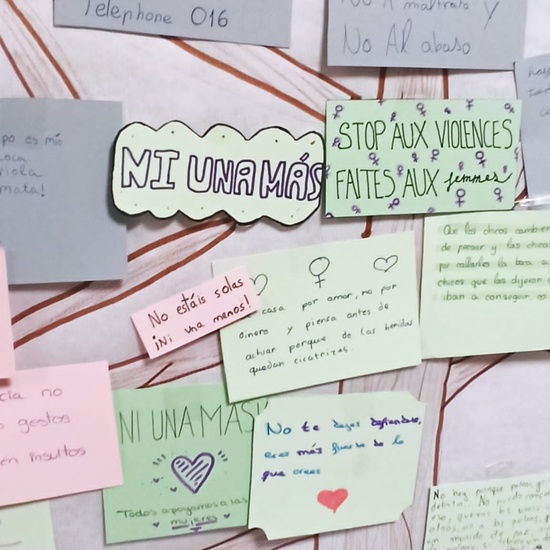 Telephone 016
No A maltrato y
No Al abuso
po es mío
oca
viola
mata!
NI UNA MÁS
STOP AUX VIOLENCES
FAITES AUX femmes
Que los chicos cambien
de pensar y las chicas
por callarles la boca a
chicos que las dijeron
iban a conseguir
No estáis solas
¡Ni una menos!
casa por amor, no por
dinero y piensa antes de
actuar porque de las heridas
quedan cicatrizes.
cia no
gestos
én insultos
NI UNA MAS!
Todos apoyamos a las
mujeres
No te dejes
eres más fuerte de lo
que crees
No hay porque